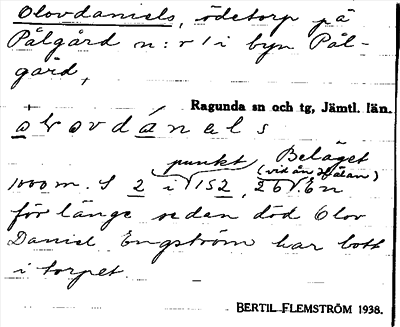 Olovdaniels, ödetorp på
Pålgård n:r 1 i byn Pål-
gård,
Ragunda sn och tg, Jämtl. län.
punkt Beläget
(vid ån, Hälan)
1000 m. S 2 i 152, 26 En
för länge sedan död Olov
Daniel Engström har bott
i torpet.
BERTIL FLEMSTRÖM 1938.